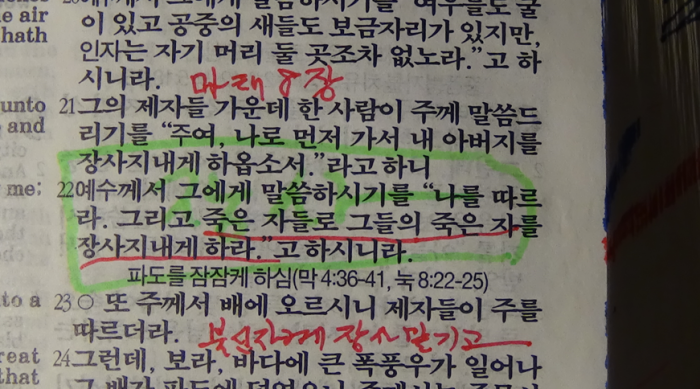 이 있고 공중의 새들도 보금자리가 있지만,
인자는 자기 머리 둘 곳조차 없노라.”고 하
시니라. 마태 8장
21 그의 제자들 가운데 한 사람이 주께 말씀드
리기를 “주여, 나로 먼저 가서 내 아버지를
장사지내게 하옵소서.”라고 하니
22 예수께서 그에게 말씀하시기를 “나를 따르
라. 그리고 죽은 자들로 그들의 죽은 자를
장사지내게 하라.”고 하시니라.
파도를 잠잠케 하심(막 4:36-41, 눅 8:22-25)
23 ○ 또 주께서 배에 오르시니 제자들이 주를
따르더라. 불신자에게 장사 맡기고
24 그런데, 보라, 바다에 큰 폭풍우가 일어나
air
hath
unto
and
me;
to a
reat
that